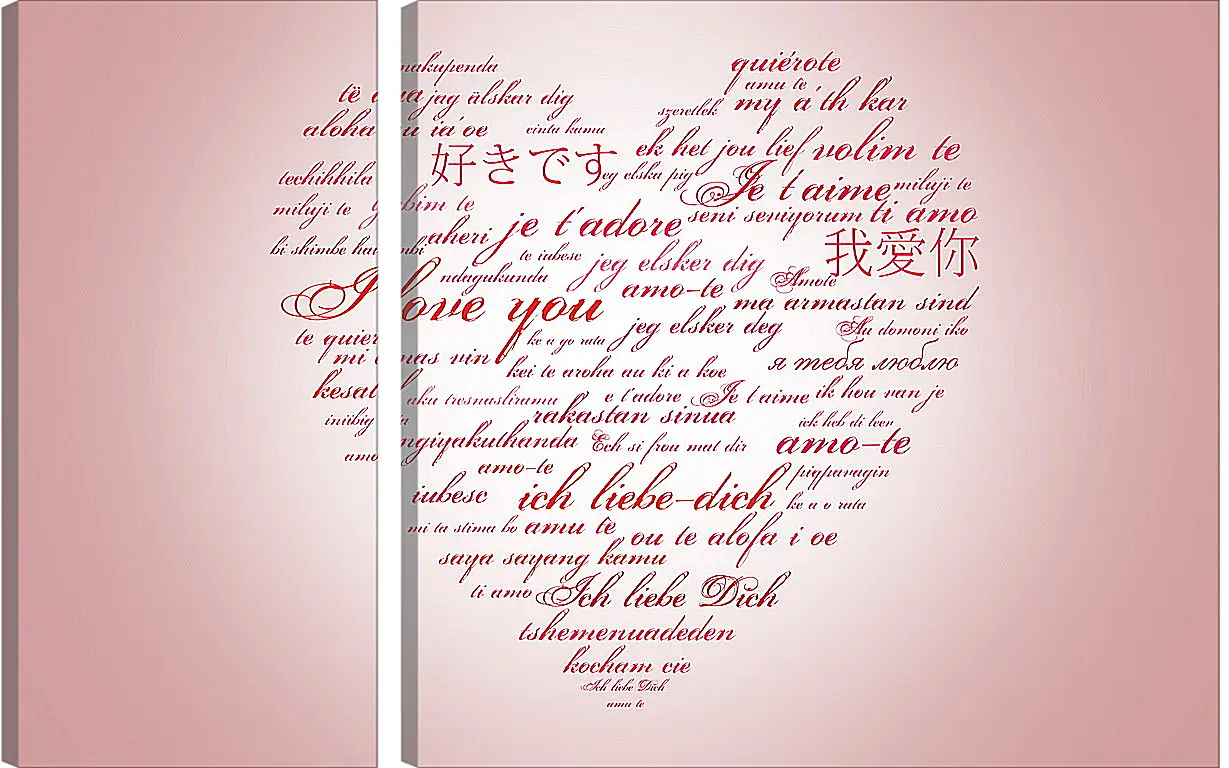 makupenda
quiérote
amu te
të ua jag älskar dig
szeretlek my a'th kar
aloha au ia'oe cinta kamu
ek het jou lief volim te
好きです
techihhila eg elska pig Je t'aime miluji te
miluji te ljubim te
je t'adore seni seviyorum ti amo
aheri
我愛你
bi shimbe
te iubesc jeg elsker dig
ndagukunda amo-te Amote
I love you ma armastan sind
jeg elsker deg Aa domoni iko
te quier ke a go rata
mi amas vin kei te aroha au ki a koe я тебя люблю
kesal aku tresnasliramu e t'adore Je t'aime ik hou van je
rakastan sinua ick heb di leev
ngiyakuthanda Ech si frou mat dir amo-te
amo amo-te pigparagin
iubesc ich liebe-dich ke a o rata
mi ta stima bo amu te ou te alofa i oe
saya sayang kamu
ti amo Ich liebe Dich
tshemenuadeden
kocham cie
Ich liebe Dich
amu te